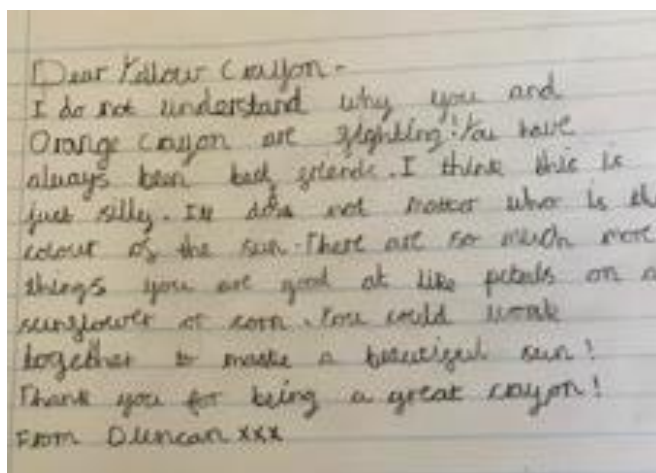 Dear Yellow Crayon-
I do not understand why you and
Orange Crayon are fighting! You have
always been best friends. I think this is
just silly. It does not matter who is the
colour of the sun. There are so much more
things you are good at like petals on a
sunflower or corn. You could work
together to make a beautiful sun!
Thank you for being a great crayon!
From Duncan xxx